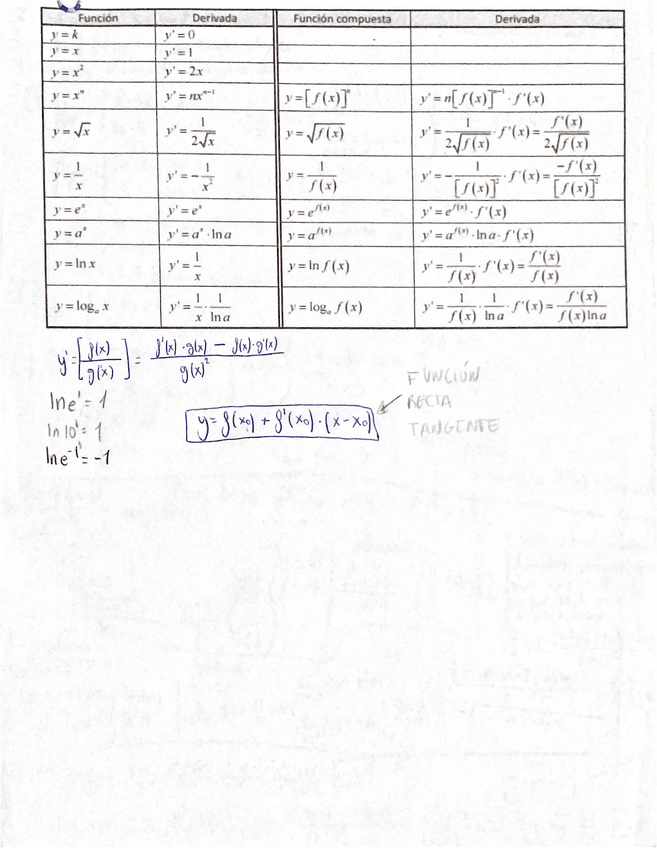 Función Derivada Función compuesta Derivada
y = k y' = 0
y = x y' = 1
y = x² y' = 2x
y = xⁿ y' = nxⁿ⁻¹ y = [f(x)]ⁿ y' = n[f(x)]ⁿ⁻¹ · f'(x)
y = √x y' = 1/(2√x) y = √f(x) y' = 1/(2√f(x)) · f'(x) = f'(x)/(2√f(x))
y = 1/x y' = -1/x² y = 1/f(x) y' = -1/[f(x)]² · f'(x) = -f'(x)/[f(x)]²
y = eˣ y' = eˣ y = e^f(x) y' = e^f(x) · f'(x)
y = aˣ y' = aˣ · ln a y = a^f(x) y' = a^f(x) · ln a · f'(x)
y = ln x y' = 1/x y = ln f(x) y' = 1/f(x) · f'(x) = f'(x)/f(x)
y = logₐ x y' = 1/x · 1/ln a y = logₐ f(x) y' = 1/f(x) · 1/ln a · f'(x) = f'(x)/(f(x) ln a)
y' = [f(x)/g(x)] = (f'(x)·g(x) - f(x)·g'(x))/g(x)²
ln e¹ = 1
ln 10¹ = 1
ln e⁻¹ = -1
y = f(x₀) + f'(x₀)·(x-x₀)
FUNCIÓN
RECTA
TANGENTE